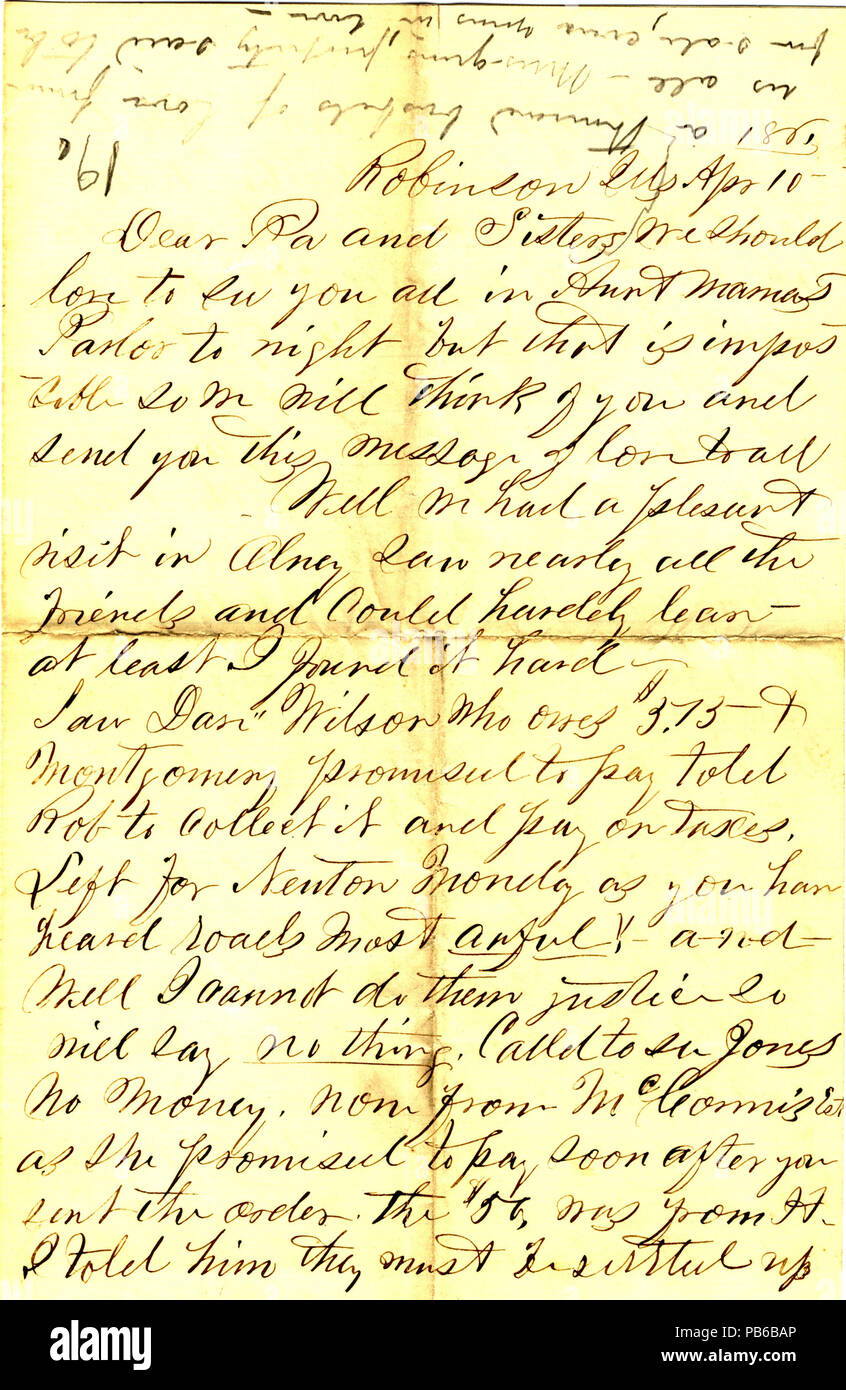 a thousand bushels of love from
us all – Mus-quins property said to be
for sale, even yours in town –
19
Robinson Ills Apr 10 –
Dear Pa and Sisters, We should
love to see you all in Aunt Mamas
Parlor to night but that is impos
sible so we will think of you and
send you this message of love to all
Well we had a plesant
visit in Olney saw nearly all the
friends and Could hardely leave –
at least I found it hard –
Saw Dave" Wilson who owes $3.75 – &
Montgomery promised to pay told
Rob to Collect it and pay on taxes.
Left for Newton Monday as you have
heard roads most awful!! – a-n-d –
Well I cannot do them justice so
will say no thing. Called to see Jones
No Money. none from McCormis Est
as she promised to pay soon after you
sent the order. the $50, was from H.
I told him they must be settled up
alamy
Image ID: PB6BAP
www.alamy.com